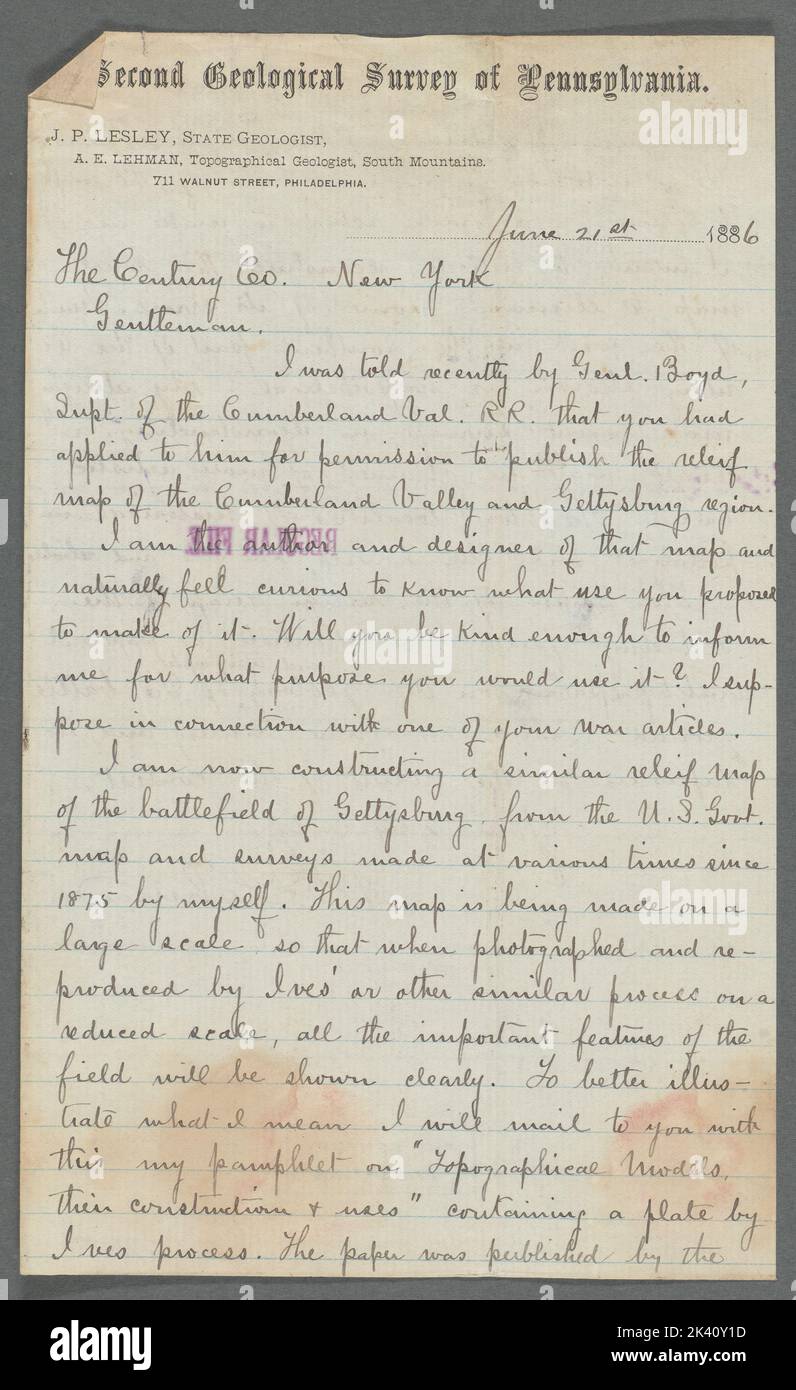 Second Geological Survey of Pennsylvania.
J. P. LESLEY, STATE GEOLOGIST,
A. E. LEHMAN, Topographical Geologist, South Mountains.
711 WALNUT STREET, PHILADELPHIA.
June 21st 1886
The Century Co. New York
Gentleman.
I was told recently by Genl. Boyd,
Supt. of the Cumberland Val. R.R. that you had
applied to him for permission to publish the releif
map of the Cumberland Valley and Gettysburg region.
I am the author and designer of that map and
REGULAR FILE
naturally fell curious to know what use you proposed
to make of it. Will you be kind enough to inform
me for what purpose you would use it? I sup-
pose in connection with one of your war articles.
I am now constructing a similar releif map
of the battlefield of Gettysburg from the U.S. Govt.
map and surveys made at various times since
1875 by myself. This map is being made on a
large scale so that when photographed and re-
produced by Ives' or other similar process on a
reduced scale, all the important features of the
field will be shown clearly. To better illus-
trate what I mean I will mail to you with
this my pamphlet on "Topographical Models,
their construction & uses" containing a plate by
Ives process. The paper was published by the
alamy
Image ID: 2K40Y1D
www.alamy.com